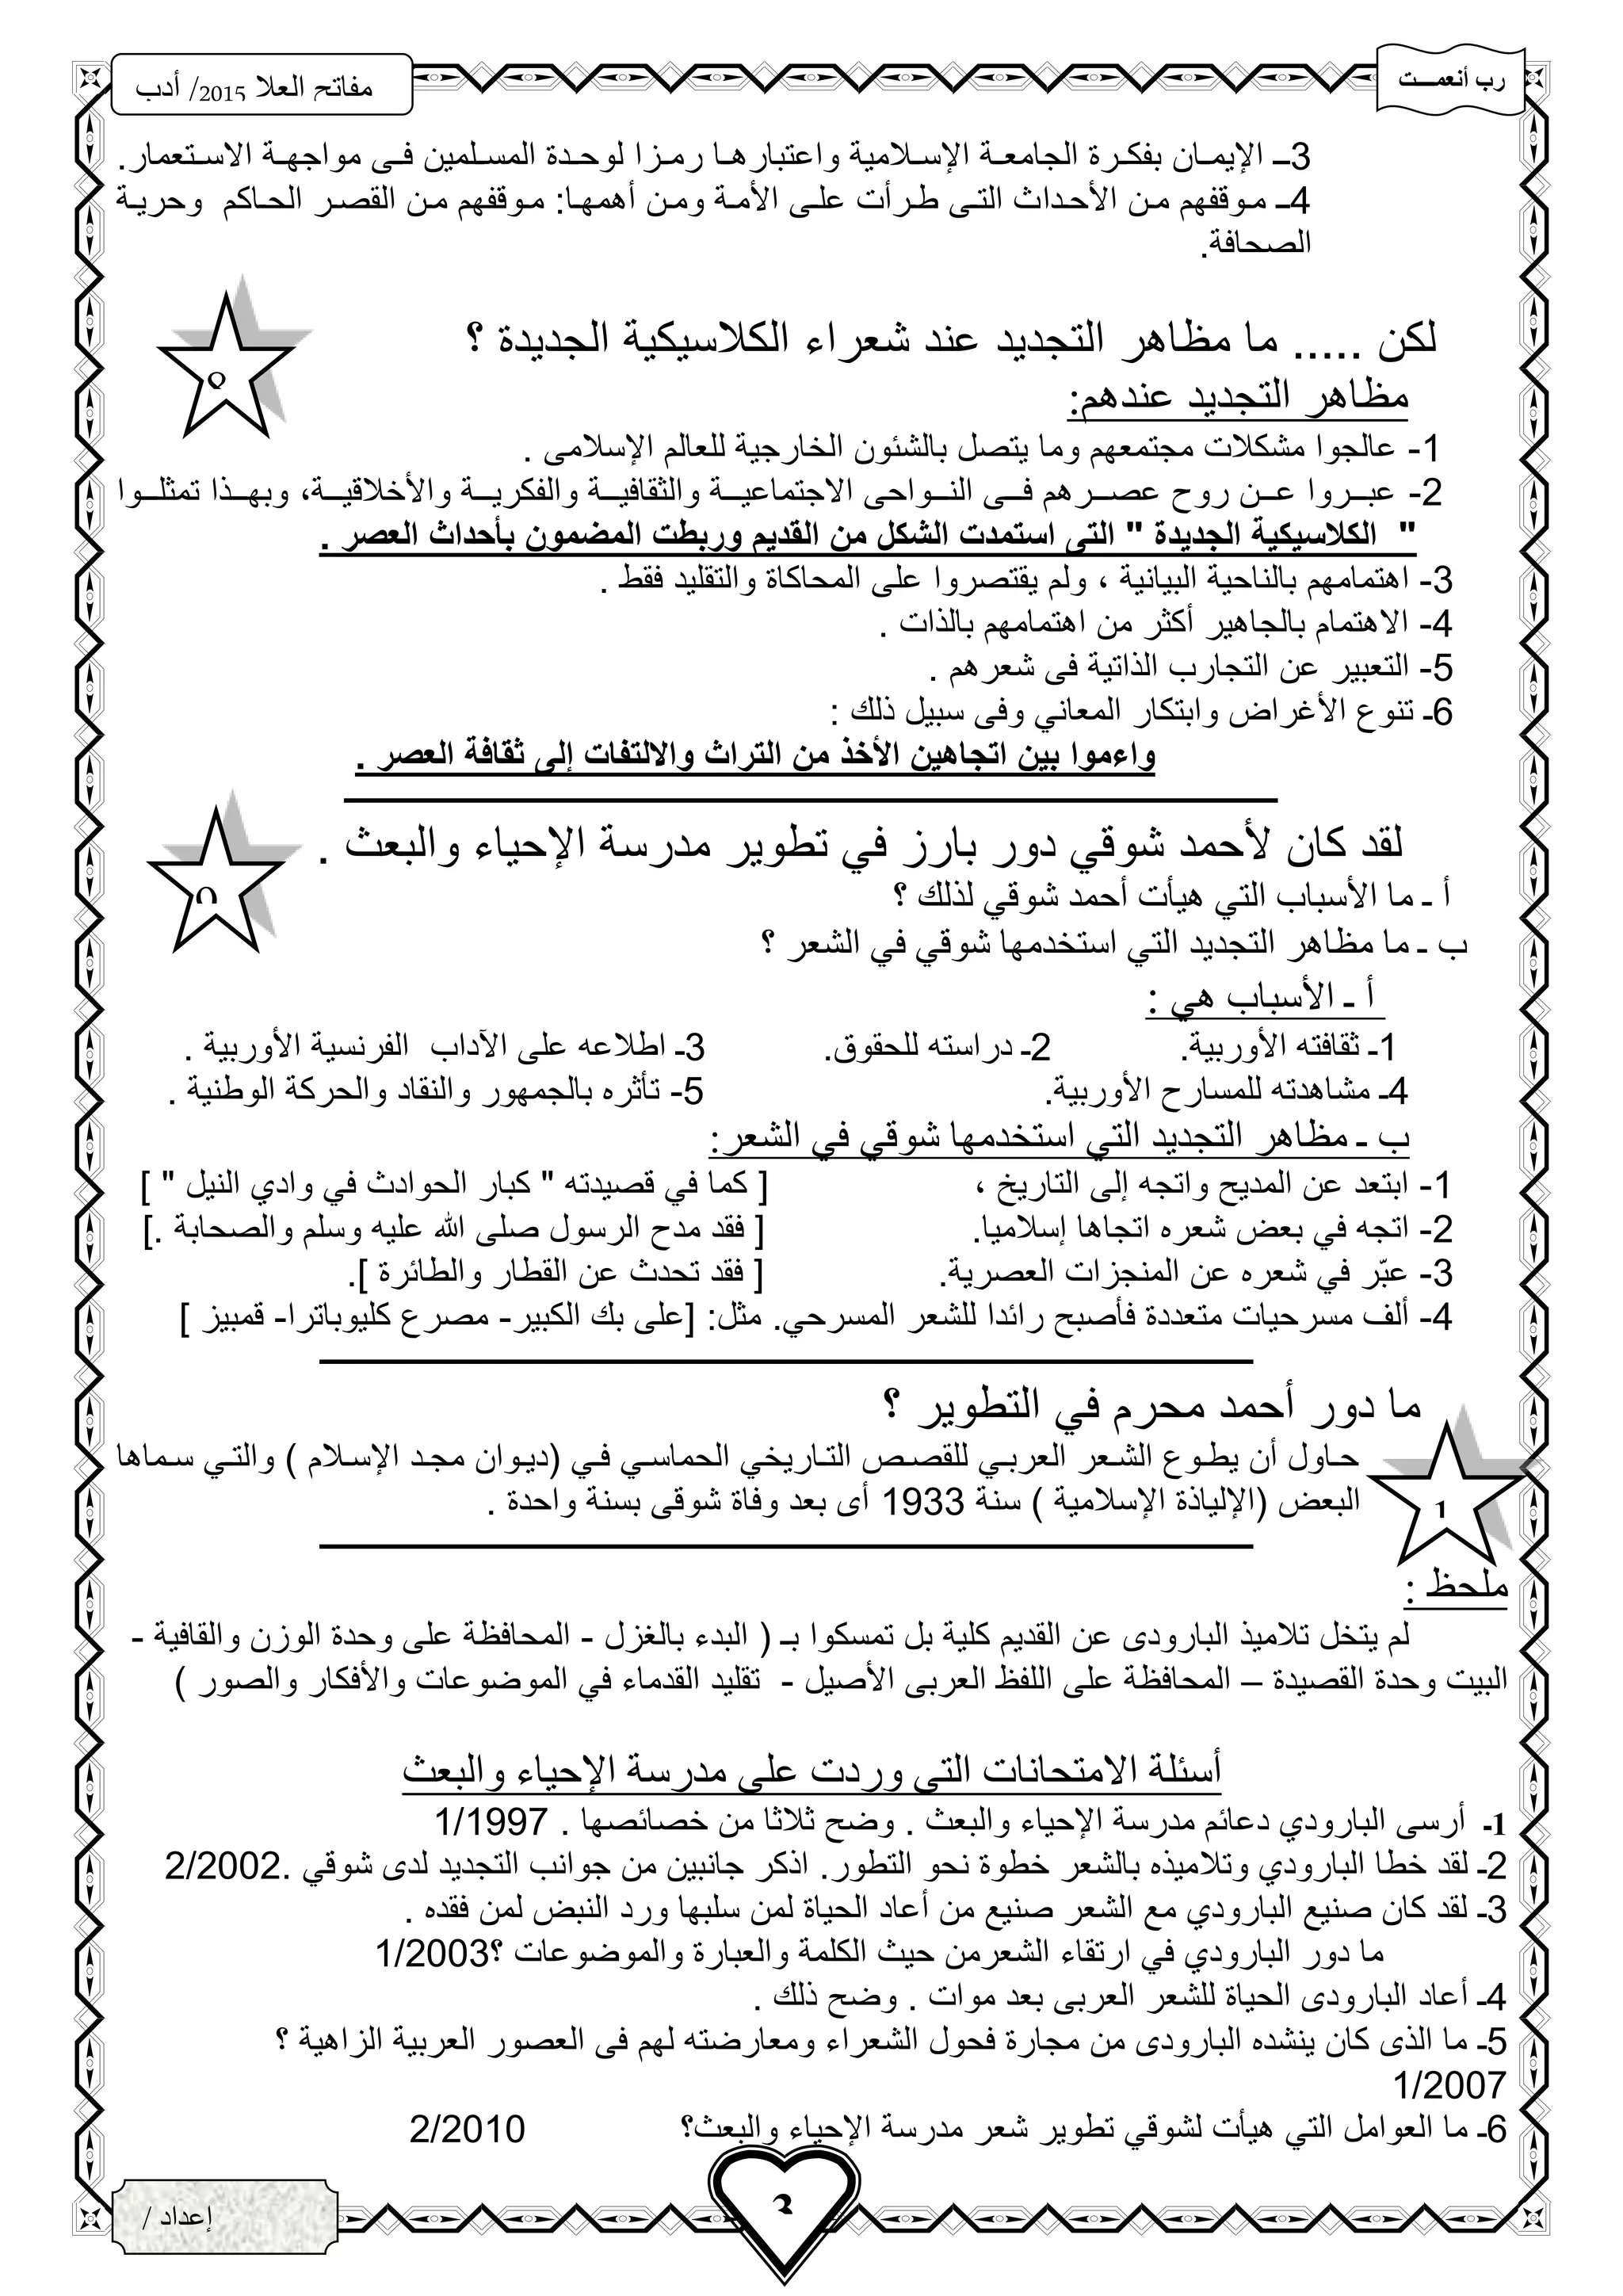 رب أنعمـــت
مفاتح العلا 2015/ أدب
3ــ الإيمـان بفكـرة الجامعـة الإسـلامية واعتبارهـا رمـزا لوحـدة المسـلمين فـى مواجهـة الاسـتعمار.
4ــ مـوقفهم مـن الأحـداث التـى طـرأت علـى الأمـة ومـن أهمهـا: مـوقفهم مـن القصـر الحـاكم وحريـة
الصحافة.
لكن ..... ما مظاهر التجديد عند شعراء الكلاسيكية الجديدة ؟
مظاهر التجديد عندهم:
1- عالجوا مشكلات مجتمعهم وما يتصل بالشئون الخارجية للعالم الإسلامى .
2- عبـروا عـن روح عصـرهم فـى النـواحى الاجتماعيـة والثقافيـة والفكريـة والأخلاقيـة، وبهـذا تمثلـوا
" الكلاسيكية الجديدة " التى استمدت الشكل من القديم وربطت المضمون بأحداث العصر .
3- اهتمامهم بالناحية البيانية ، ولم يقتصروا على المحاكاة والتقليد فقط .
4- الاهتمام بالجاهير أكثر من اهتمامهم بالذات .
5- التعبير عن التجارب الذاتية فى شعرهم .
6ـ تنوع الأغراض وابتكار المعاني وفى سبيل ذلك :
واءموا بين اتجاهين الأخذ من التراث والالتفات إلى ثقافة العصر .
لقد كان لأحمد شوقي دور بارز في تطوير مدرسة الإحياء والبعث .
أ ـ ما الأسباب التي هيأت أحمد شوقي لذلك ؟
ب ـ ما مظاهر التجديد التي استخدمها شوقي في الشعر ؟
أ ـ الأسباب هي :
1ـ ثقافته الأوربية. 2ـ دراسته للحقوق. 3ـ اطلاعه على الآداب الفرنسية الأوربية .
4ـ مشاهدته للمسارح الأوربية. 5- تأثره بالجمهور والنقاد والحركة الوطنية .
ب ـ مظاهر التجديد التي استخدمها شوقي في الشعر:
1- ابتعد عن المديح واتجه إلى التاريخ ، [ كما في قصيدته " كبار الحوادث في وادي النيل " ]
2- اتجه في بعض شعره اتجاها إسلاميا. [ فقد مدح الرسول صلى الله عليه وسلم والصحابة .]
3- عبّر في شعره عن المنجزات العصرية. [ فقد تحدث عن القطار والطائرة ].
4- ألف مسرحيات متعددة فأصبح رائدا للشعر المسرحي. مثل: [على بك الكبير- مصرع كليوباترا- قمبيز ]
ما دور أحمد محرم في التطوير ؟
1
حـاول أن يطـوع الشـعر العربـي للقصـص التـاريخي الحماسـي فـي (ديـوان مجـد الإسـلام ) والتـي سـماها
البعض (الإلياذة الإسلامية ) سنة 1933 أى بعد وفاة شوقى بسنة واحدة .
ملحظ :
لم يتخل تلاميذ البارودى عن القديم كلية بل تمسكوا بـ ( البدء بالغزل - المحافظة على وحدة الوزن والقافية -
البيت وحدة القصيدة – المحافظة على اللفظ العربى الأصيل - تقليد القدماء في الموضوعات والأفكار والصور )
أسئلة الامتحانات التى وردت على مدرسة الإحياء والبعث
1ـ أرسى البارودي دعائم مدرسة الإحياء والبعث . وضح ثلاثا من خصائصها . 1/1997
2ـ لقد خطا البارودي وتلاميذه بالشعر خطوة نحو التطور. اذكر جانبين من جوانب التجديد لدى شوقي .2/2002
3ـ لقد كان صنيع البارودي مع الشعر صنيع من أعاد الحياة لمن سلبها ورد النبض لمن فقده .
ما دور البارودي في ارتقاء الشعرمن حيث الكلمة والعبارة والموضوعات ؟1/2003
4ـ أعاد البارودى الحياة للشعر العربى بعد موات . وضح ذلك .
5ـ ما الذى كان ينشده البارودى من مجارة فحول الشعراء ومعارضته لهم فى العصور العربية الزاهية ؟
1/2007
6ـ ما العوامل التي هيأت لشوقي تطوير شعر مدرسة الإحياء والبعث؟ 2/2010
إعداد /